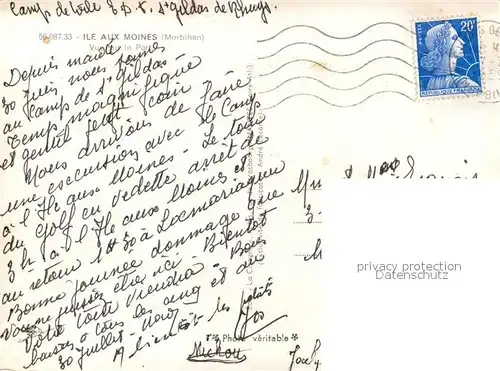 Camp de toile E.D.F. St Gildas de Rhuys
56.087.33 - ILE AUX MOINES (Morbihan)
Vue sur le Port
Depuis mardi
30 juin nous sommes
au Camp de St Gildas
Temps magnifique
et gentil petit coin
Nous arrivons de faire
une excursion avec le Camp
à l'Ile aux Moines - Le tour
du golf en vedette arrêt de
3 h à l'Ile aux Moines et
au retour 1 h 30 à Locmariaquer
Bonne journée dommage que
vous ne puissiez être ici. Bientôt
votre tour viendra. Bons
baisers à tous les cinq et au
30 Juillet
A bientôt les petits
Jos
Michou
Photo véritable
20F
REPUBLIQUE FRANÇAISE
privacy protection
Datenschutz